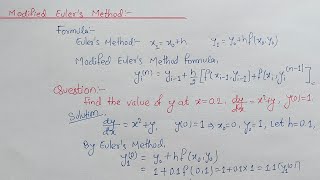 Modified Euler's Method:-
Formula:-
Euler's Method:- x₁ = x₀+h y₁ = y₀+hf(x₀,y₀)
Modified Euler's Method Formula,
y₁⁽ⁿ⁾ = yᵢ₋₁ + h/2 [f(xᵢ₋₁, yᵢ₋₁)+f(xᵢ, yᵢ⁽ⁿ⁻¹⁾]
Question:-
Find the value of y at x=0.2, dy/dx = x²+y, y(0)=1.
Solution
dy/dx = x²+y, y(0)=1 ⇒ x₀=0, y₀=1, Let h=0.1,
By Euler's Method,
y₁⁽⁰⁾ = y₀ + hf(x₀,y₀)
= 1+0.1f(0,1) = 1+0.1×1 = 1.1